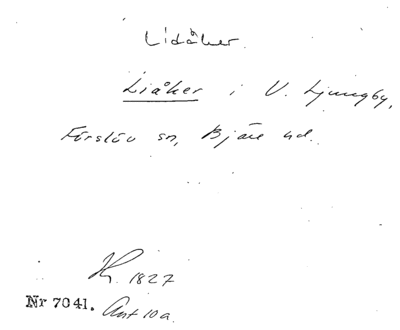 Lidåker.
Liåker i V. Ljungby,
Förslöv sn, Bjäre hd.
Kr. 1827
Nr 7041. Ant 10 a.